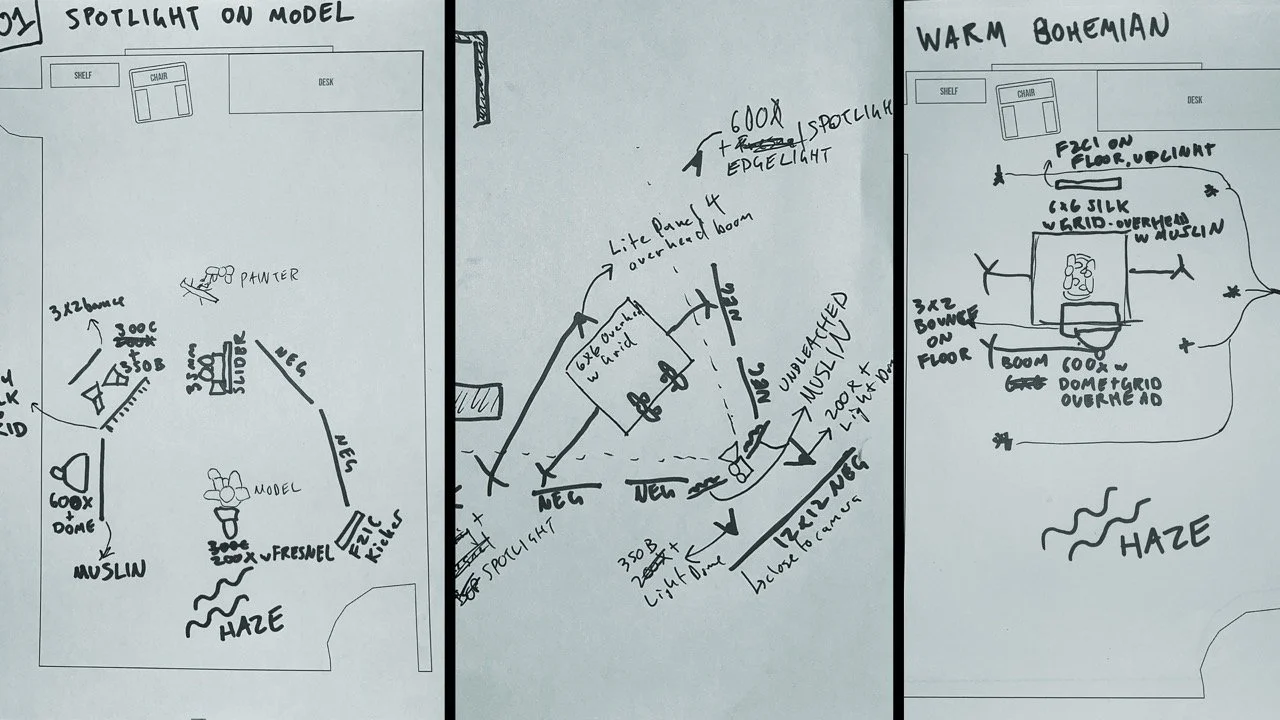 01
SPOTLIGHT ON MODEL
SHELF
CHAIR
DESK
PAINTER
3x2 bounce
300C
+
350B
35mm
SLIDER
NEG
NEG
600X
+
DOME
MUSLIN
MODEL
200X w FRESNEL
F21C
Kicker
HAZE
600X
+ SPOTLIGHT
EDGELIGHT
Lite Panel 4
overhead boom
6x6 Overhead
w Grid
NEG
NEG
UNBLEACHED
MUSLIN
200X +
Light Dome
NEG
NEG
12x12 NEG
close to camera
350B
+
Light Dome
+
SPOTLIGHT
WARM BOHEMIAN
SHELF
CHAIR
DESK
F2C1 ON
FLOOR, UPLIGHT
6x6 SILK
w GRID-OVERHEAD
w MUSLIN
3x2
BOUNCE
ON
FLOOR
BOOM
600X w
DOME+GRID
OVERHEAD
HAZE